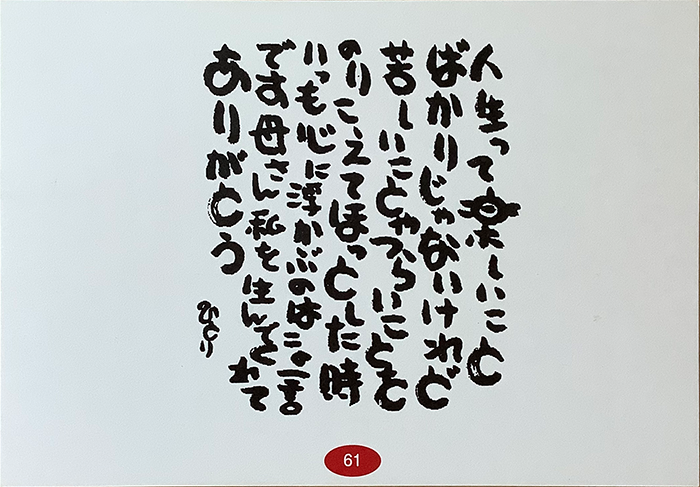 人生って楽しいこと
ばかりじゃないけれど
苦しいことやつらいことを
のりこえてほっとした時
いつも心に浮かぶのはこの一言
です母さん私を生んでくれて
ありがとう
ひとり
61